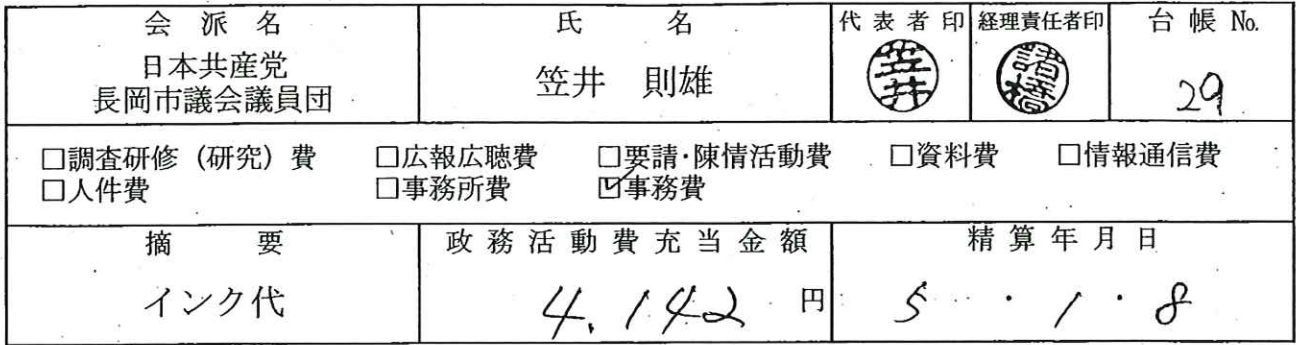 会派名 氏名 代表者印 経理責任者印 台帳 No.
日本共産党
長岡市議会議員団 笠井 則雄 笠井 諸橋 29
□調査研修(研究)費 □広報広聴費 □要請・陳情活動費 □資料費 □情報通信費
□人件費 □事務所費 ☑事務費
摘要 政務活動費充当金額 精算年月日
インク代 4,142 円 5・1・8